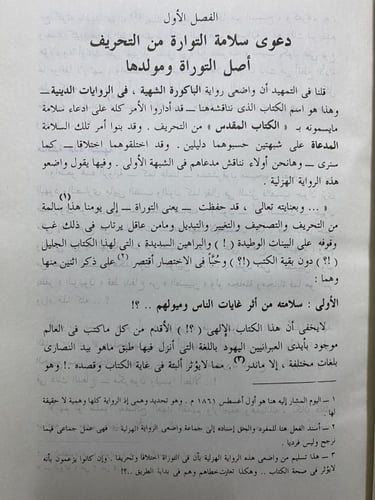 الفصل الأول
دعوى سلامة التوارة من التحريف
أصل التوراة ومولدها
قلنا فى التمهيد أن واضعى رواية الباكورة الشهية ، فى الروايات الدينية ــ
وهذا هو اسم الكتاب الذى نناقشه هنا ــ قد أداروا الأمر كله على ادعاء سلامة
مايسمونه بـ « الكتاب المقدس » من التحريف . وقد بنوا أمر تلك السلامة
المدعاة على شبهتين حسبوهما دليلين . وقد اختلقوهما إختلاقا ــ كما
سنرى ــ وهانحن أولاء نناقش مدعاهم فى الشبهة الأولى . وفيها يقول واضعو
هذه الرواية الهزلية .
« ... وبعنايته تعالى ، قد حفظت ــ يعنى التوراة ــ إلى يومنا هذا (١) سالمة
من التحريف والتصحيف والتغيير والتبديل ومامن عاقل يرتاب فى ذلك غب
وقوفه على البينات الوطيدة ( ! ) والبراهين السديدة ، التى لهذا الكتاب الجليل
( ! ) دون بقية الكتب (!؟) وحُبًّا فى الاختصار أقتصر (٢) على ذكر اثنين منها
وهما :
الأولى : سلامته من أثر غايات الناس وميولهم .. ؟!
لايخفى أن هذا الكتاب الإلهى ( ؟! ) الأقدم من كل ماكتب فى العالم
موجود بأيدى العبرانيين اليهود باللغة التى أنزل فيها طبق ماهو بيد النصارى
بلغات مختلفة ، إلا ماندر (٣) . مما لايؤثر ألبتة فى غاية الكتاب وقصده .! وهو
١ ــ اليوم المشار إليه هنا هو أول أغسطس ١٨٦١ م . وهو تحديد وهمى إذ الرواية كلها وهمية لا حقيقة
لها .
٢ ــ أسند الفعل هنا للمفرد والحق إسناده إلى جماعة واضعى الرواية الهزلية .. فهى عمل جماعى فيما
نرجح وليس فرديا .
٣ ــ هذا تسليم من واضعى هذه الرواية الهزلية بأن فى التوراة اختلافا وتحريفا . وإن كانوا يزعمون بأنه
لايؤثر فى صحة الكتاب .. وهكذا تهاوت خطاهم وهم فى بداية الطريق ..؟!